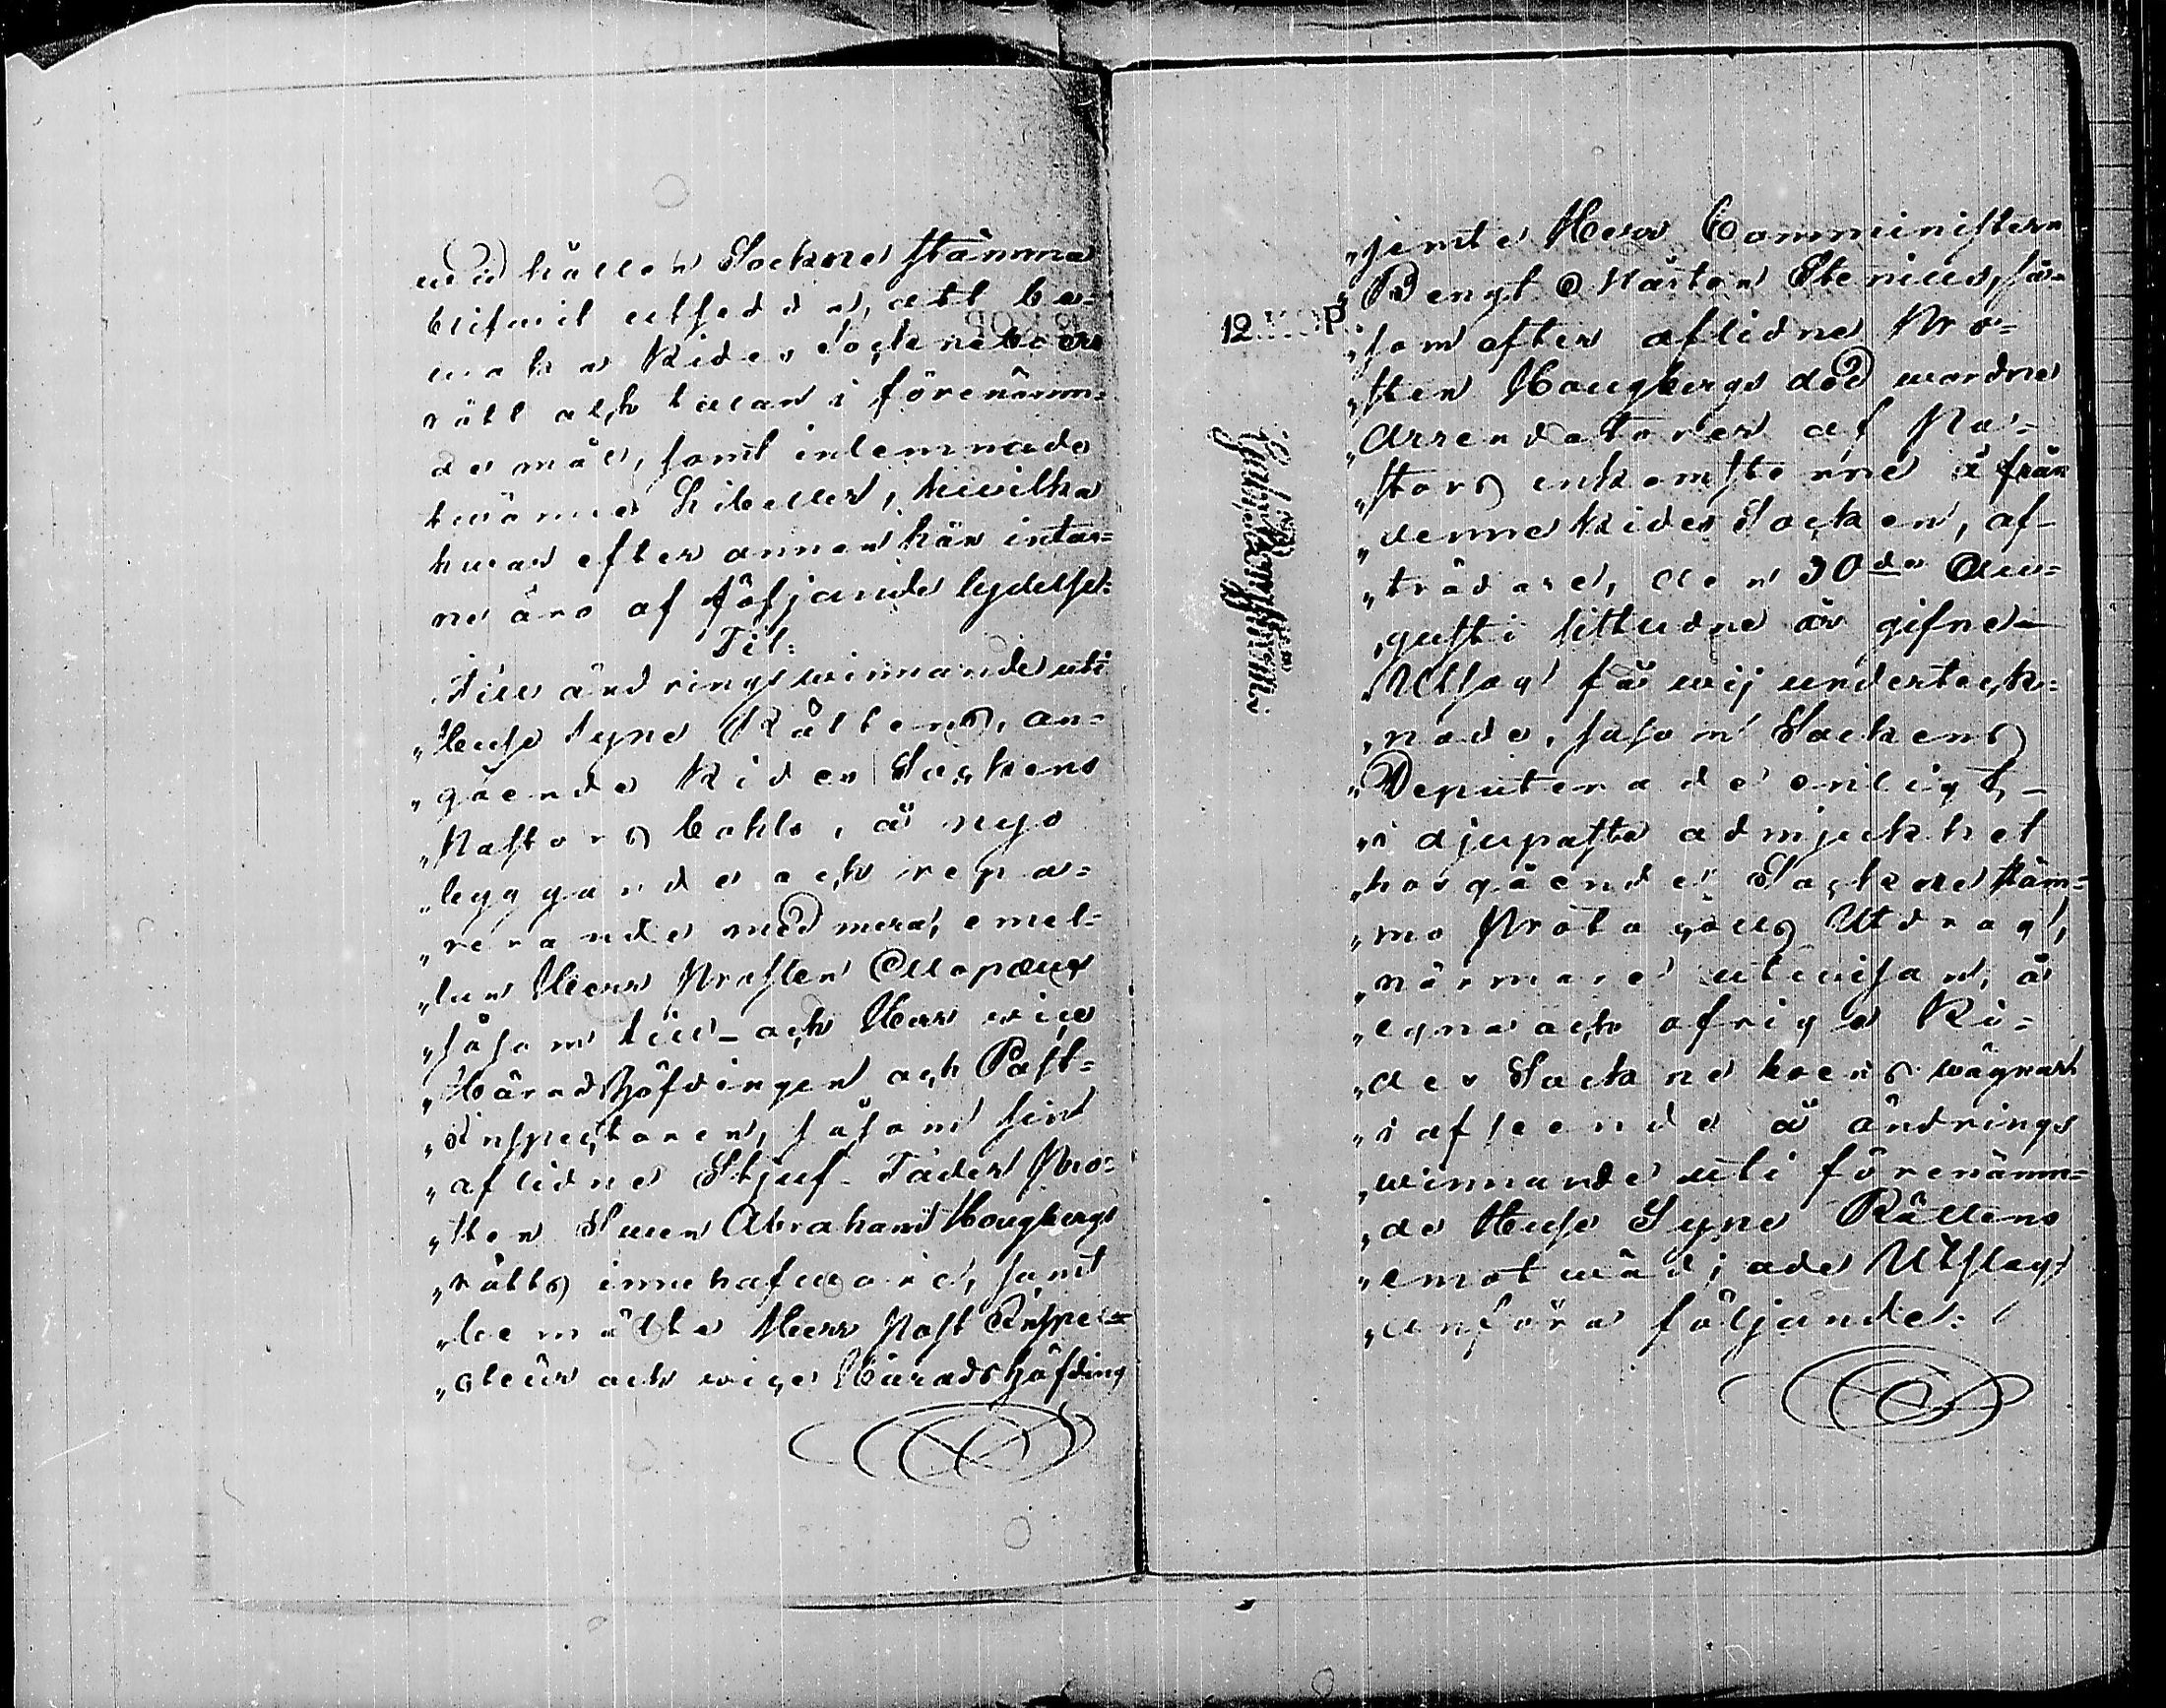 wid hållen Sockne stämma
blifwit utsedde, att be-
waka Kides Sockneboers
rätt och talan i förenämn-
de mål, samt inlemnade
twänne Libeller, hwilka
hwar efter annan här intag-
ne äro af följande lydelse:
Til:
„Till ändrings winnande uti
„Huse Syne Rättens, an-
„gående Kides Sockens
„Pastors bohls, å nyo
„byggande och repa-
„rerande med mera, emel-
„lan Herr Prosten Alopæus
„såsom till- och Herr vice
„Häradshöfdingen och Post-
„Inspectoren, såsom sin
„aflidne Stjuf-Fader Pro-
„sten Swen Abraham Hougbergs
„rätts innehafware, samt
„bemälte Herr Post Inspec-
„cteur och vice Häradshöfding
„jemte Herr Comministern
„Bengt Mårten Stenius, så-
„som efter aflidne Pro-
„sten Hougbergs död wordne
„Arrendatorer af Pa-
„stors inkomsterne ifrån
„denne Kides Socken, af-
„trädare, den 30de Au-
„gusti sittludne år gifne
„Utslag få wij underteck-
„nade, såsom Sockens
„Deputerade enligt
„i djupaste ödmjukhet
„hosgående Sockne stäm-
„mo Protocolls Utdrag,
„närmare utwisar, å
„egna och öfrige Ki-
„des Sockne boers wägnar
„i afseende å ändrings
„winnande uti förenämn-
„de Huse Syne Rättens
„emot wädjade Utslag
„anföra följande:
12